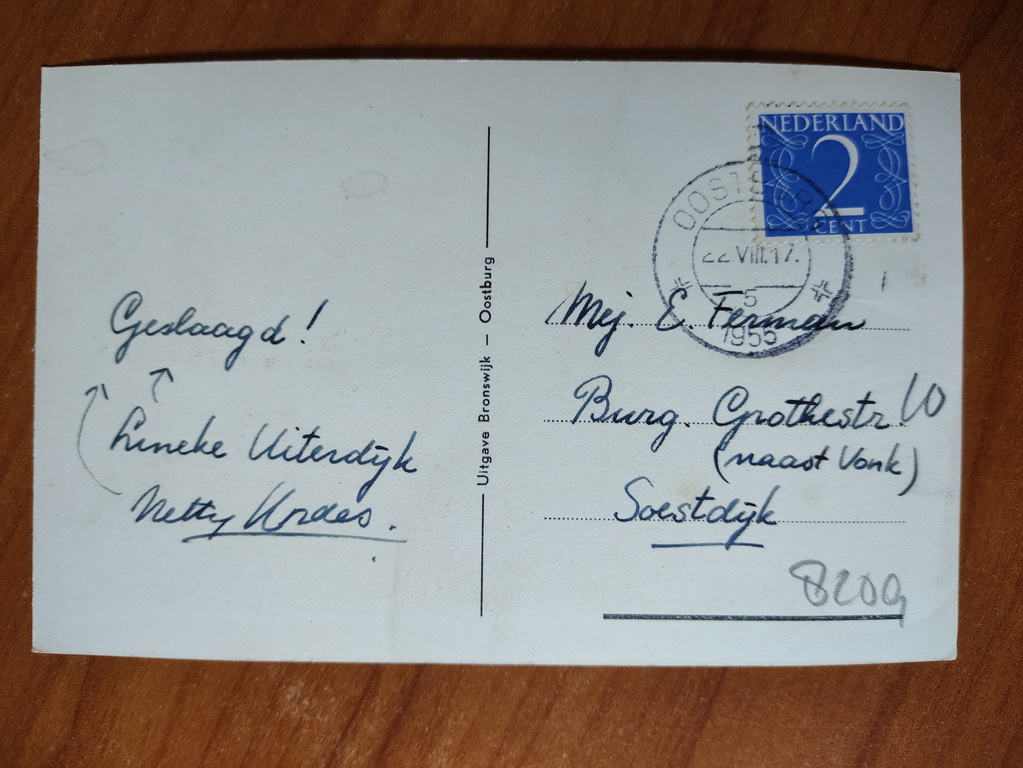 NEDERLAND
2
CENT
OOSTBURG
22 VIII.17.
5
1955
Geslaagd!
Lineke Uiterdijk
Netty Kordes.
Uitgave Bronswijk — Oostburg
Mej. E. Ferman
Burg. Grothestr. 10
(naast Vonk)
Soestdijk